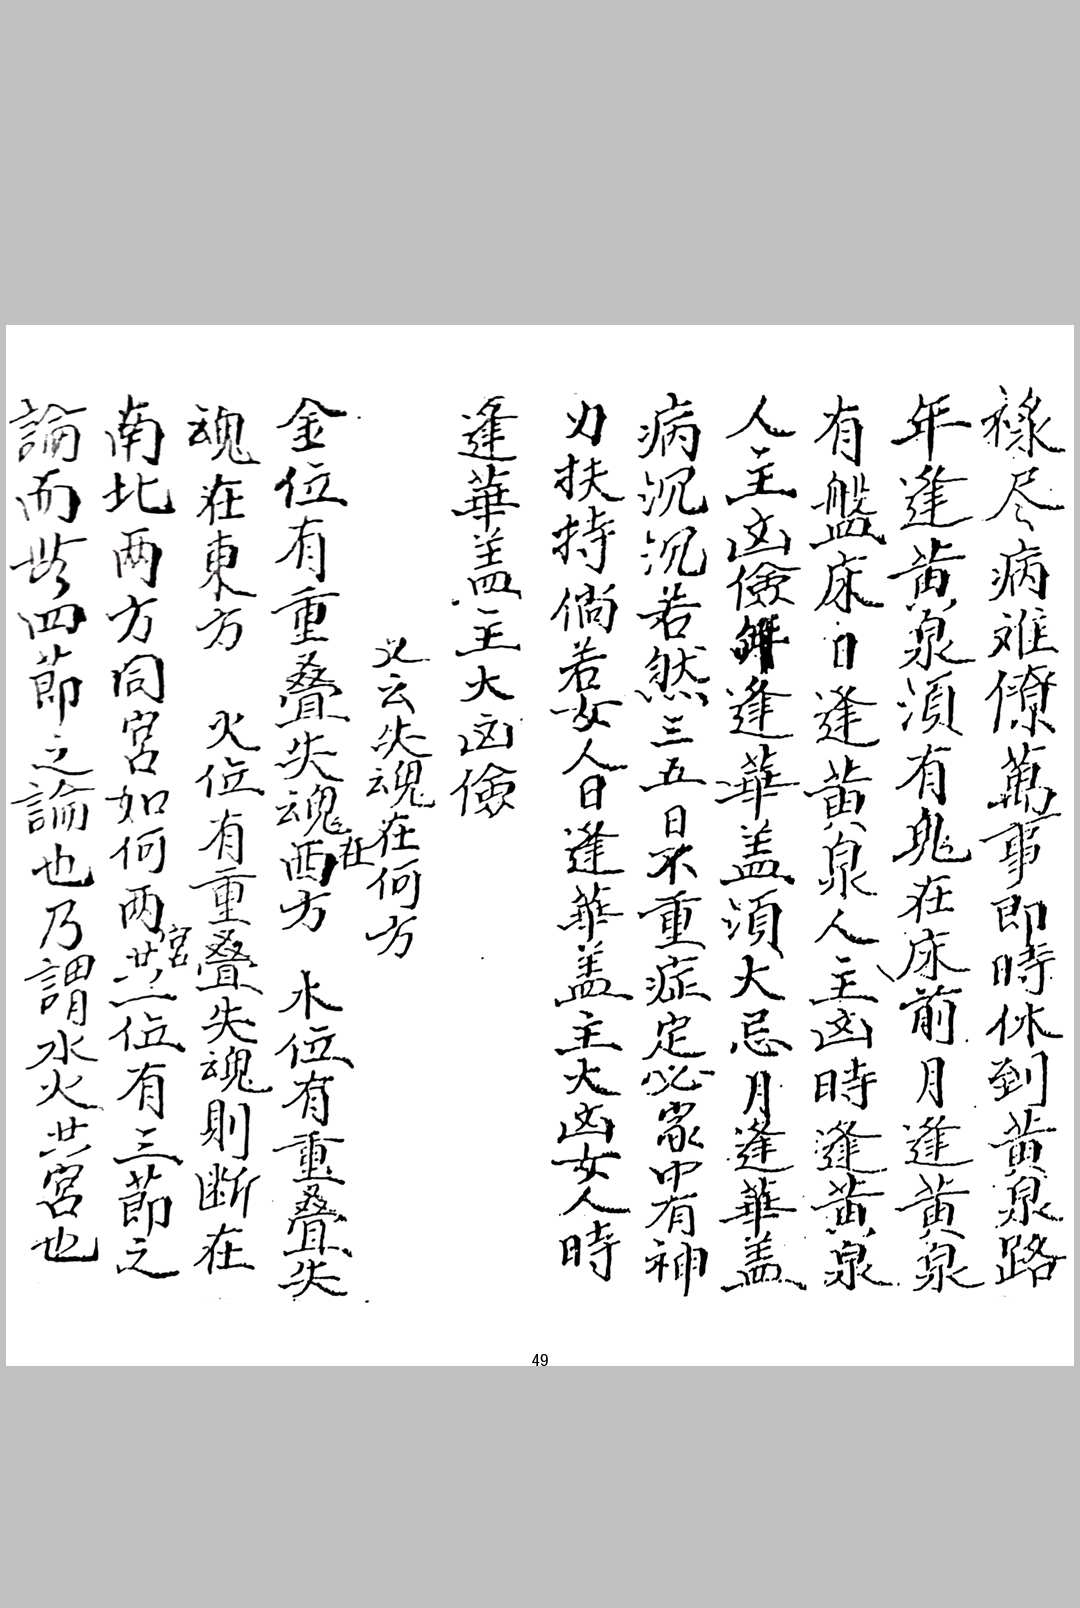 祿尽病难僚萬事即時休到黄泉路
年逢黄泉湏有鬼在床前月逢黄泉
有盤床日逢黄泉人主凶時逢黄泉
人主凶儉逢華盖湏大忌月逢華盖
病沉沉若然三五日不重症定必家中有神
力扶持倘若女人日逢華盖主大凶女人時
逢華盖主大凶儉
又云失魂在何方
金位有重叠失魂在西方 水位有重叠失
魂在東方 火位有重叠失魂則断在
南北两方同宫如何两宫共一位有三節之
論而此四節之論也乃謂水火共宫也
49